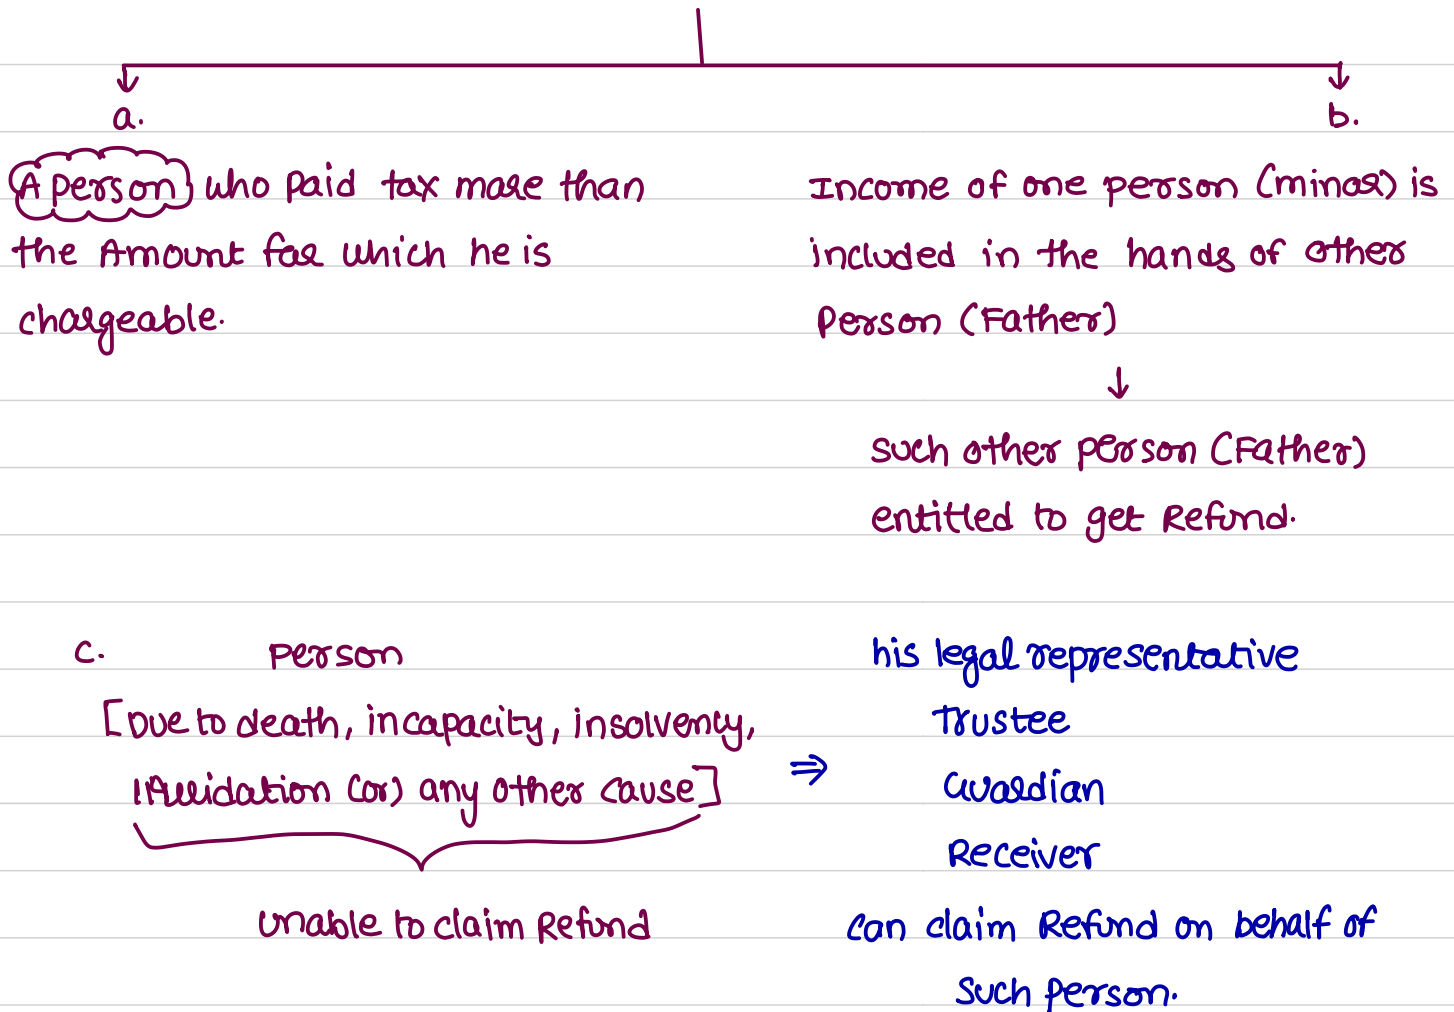 a.
A person who paid tax more than
the Amount for which he is
chargeable.
b.
Income of one person (minor) is
included in the hands of other
Person (Father)
↓
such other person (Father)
entitled to get Refund.
c. Person
[Due to death, incapacity, insolvency,
liquidation (or) any other cause]
unable to claim Refund
⇒
his legal representative
Trustee
Guardian
Receiver
can claim Refund on behalf of
such person.